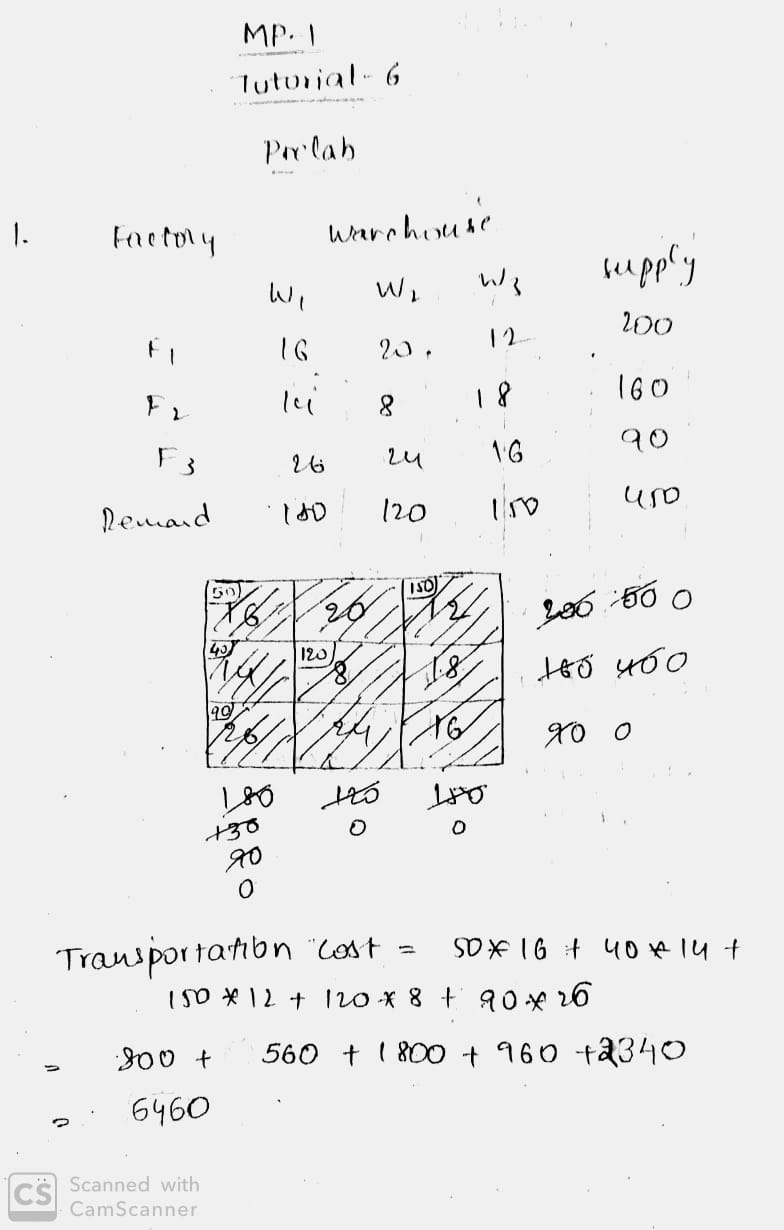 MP. 1
Tutorial - 6
Prelab
1. Factory Warehouse
W1 W2 W3 supply
F1 16 20 12 200
F2 14 8 18 160
F3 26 24 16 90
Demand 180 120 150 450
50 16 20 150 12 200 50 0
40 14 120 8 18 160 40 0
90 26 24 16 90 0
180 120 150
130 0 0
90
0
Transportation cost = 50 * 16 + 40 * 14 +
150 * 12 + 120 * 8 + 90 * 26
= 800 + 560 + 1800 + 960 + 2340
= 6460
CS Scanned with
CamScanner